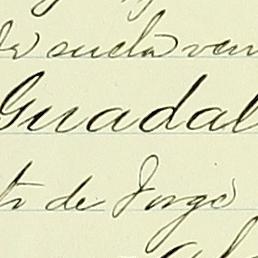 de suela ven
Guadal
to de Jorge